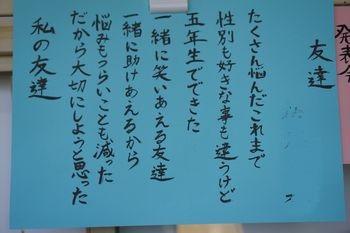 発表会
友達
たくさん悩んだこれまで
性別も好きな事も違うけど
五年生でできた
一緒に笑いあえる友達
一緒に助けあえるから
悩みもつらいことも減った
だから大切にしようと思った
私の友達